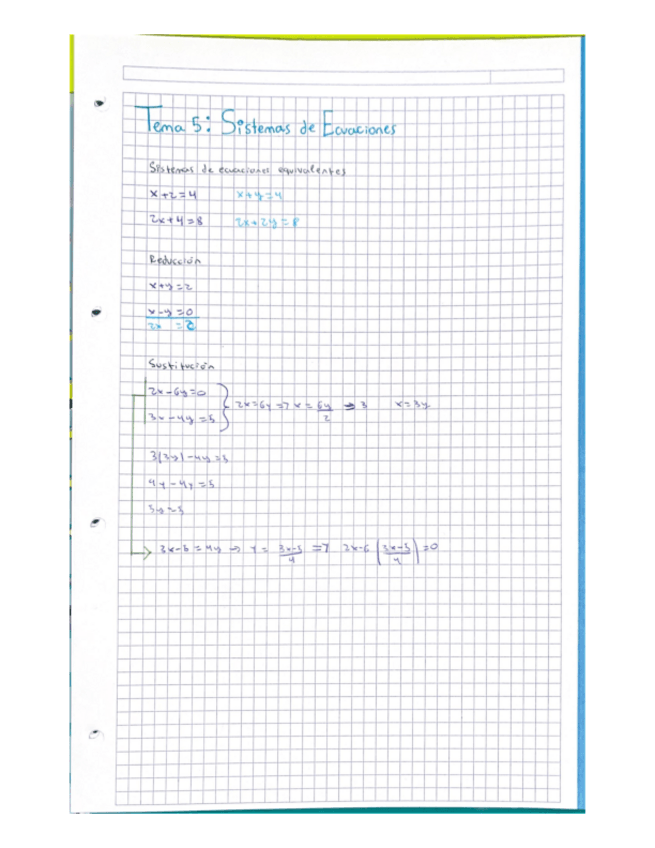 Tema 5: Sistemas de Ecuaciones
Sistemas de ecuaciones equivalentes
x+2=4 x+y=4
2x+4=8 2x+2y=8
Reducción
x+y=2
x-y=0
2x =2
Sustitución
2x-6y=0
3x-4y=5
2x=6y => x = 6y/2 => 3 x=3y
3(3y)-4y=5
9y-4y=5
5y=5
3x-5=4y => y = 3x-5/4 => 2x-6(3x-5/4)=0